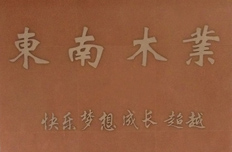 東南木業
快乐梦想成长超越